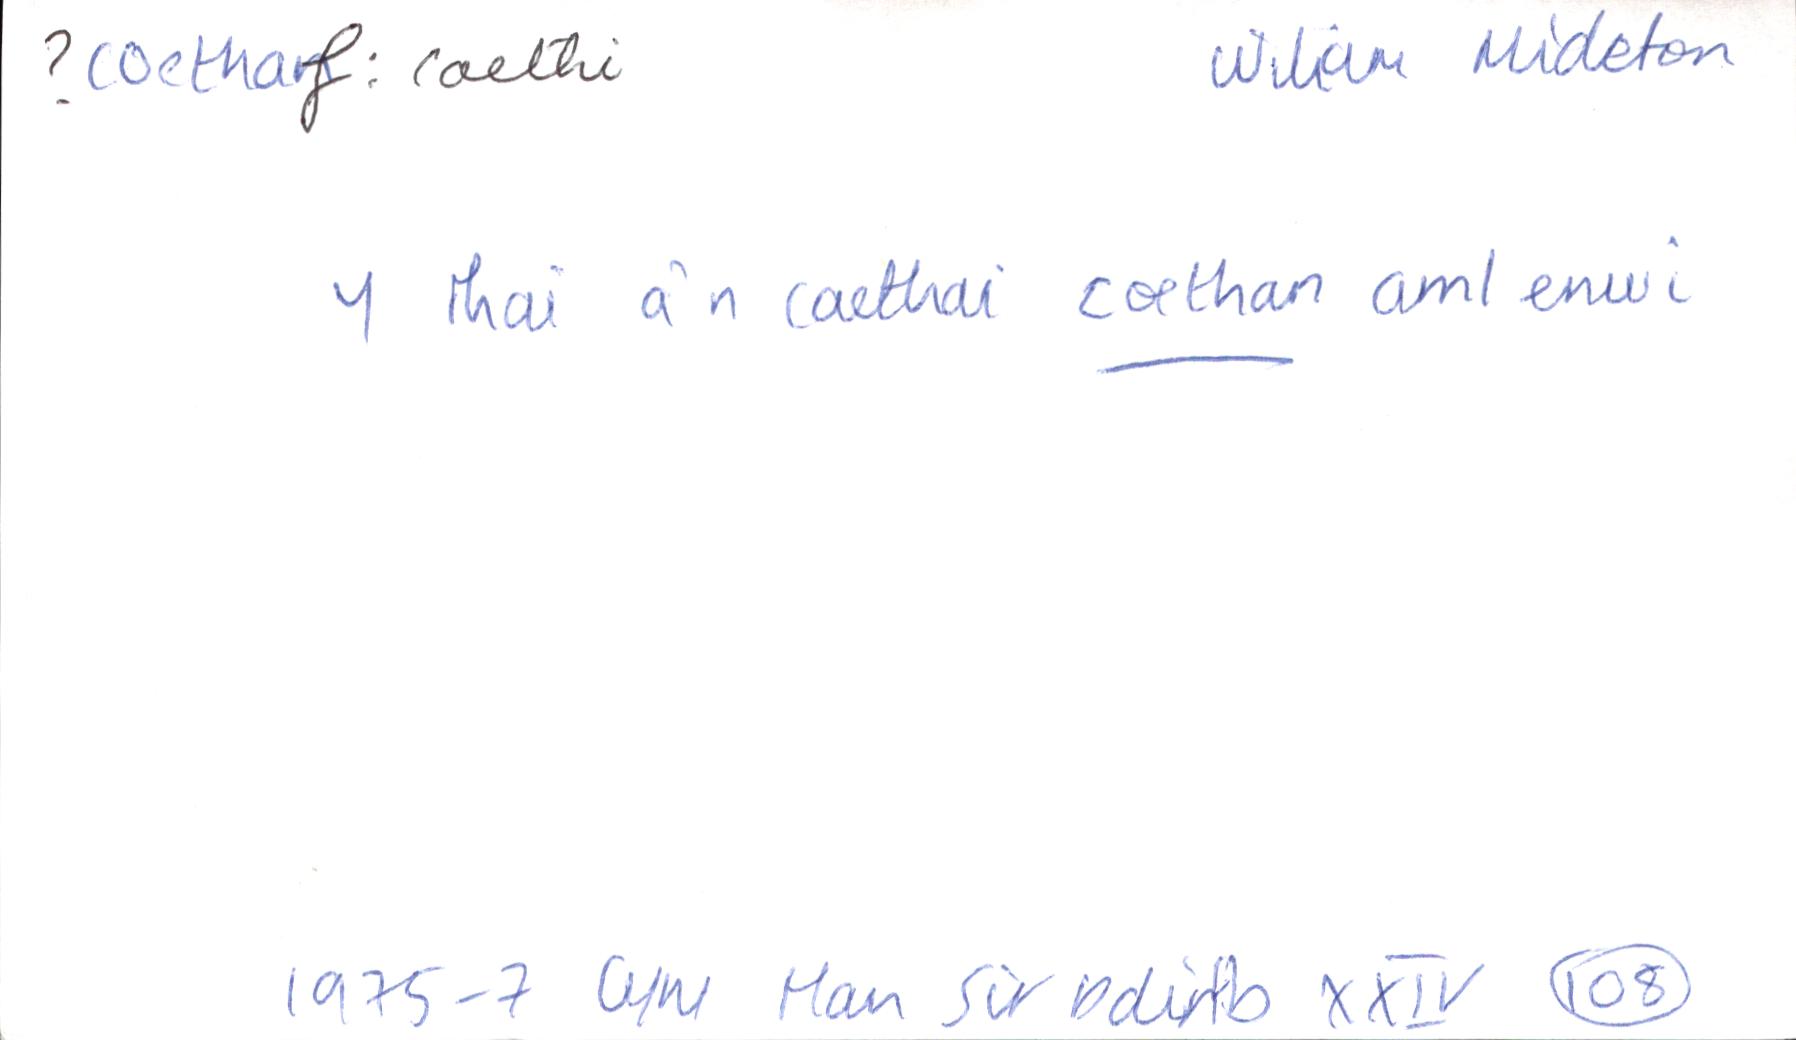 ?coethaf: caethi Wiliam Mideton
Y rhai a'n caethai coethan aml enwi
1975-7 Cym Han Sir Ddinb XXIV 108